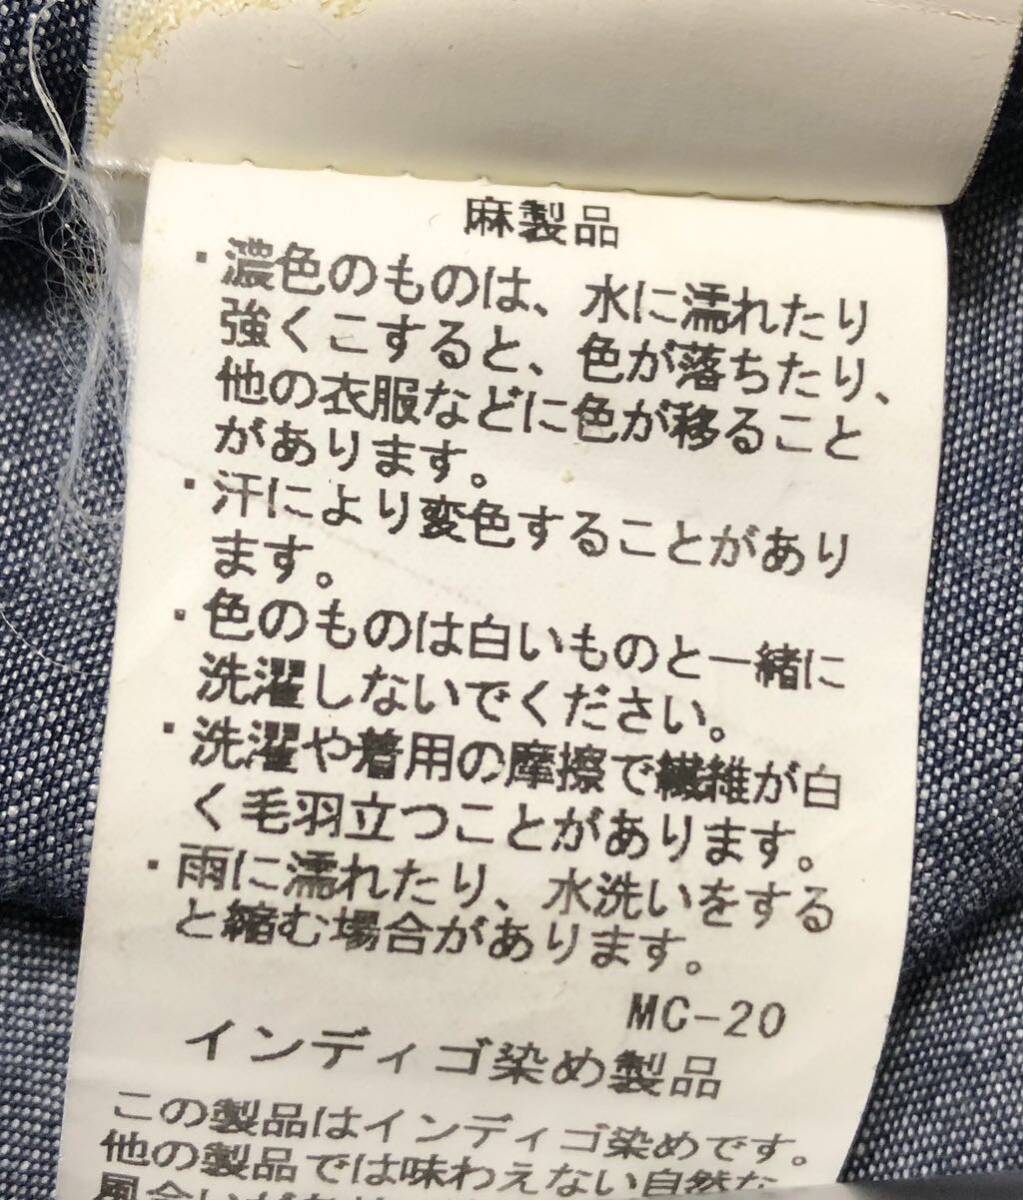 麻製品
・濃色のものは、水に濡れたり
強くこすると、色が落ちたり、
他の衣服などに色が移ること
があります。
・汗により変色することがあり
ます。
・色のものは白いものと一緒に
洗濯しないでください。
・洗濯や着用の摩擦で繊維が白
く毛羽立つことがあります。
・雨に濡れたり、水洗いをする
と縮む場合があります。
MC-20
インディゴ染め製品
この製品はインディゴ染めです。
他の製品では味わえない自然な
風合いが